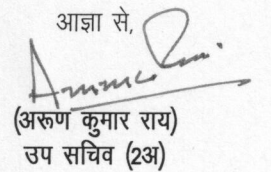 आज्ञा से,
(अरूण कुमार राय)
उप सचिव (2अ)